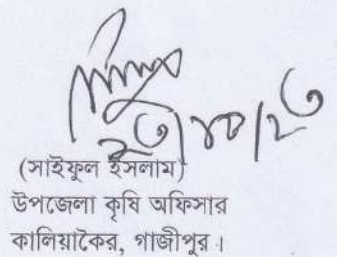 (সাইফুল ইসলাম)
উপজেলা কৃষি অফিসার
কালিয়াকৈর, গাজীপুর।